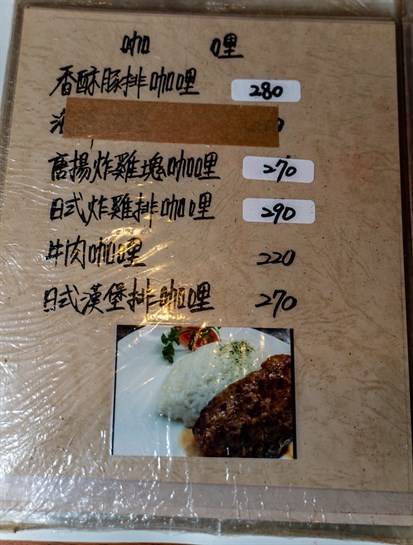 咖 哩
香酥豚排咖哩 280
唐揚炸雞塊咖哩 270
日式炸雞排咖哩 290
牛肉咖哩 220
日式漢堡排咖哩 270